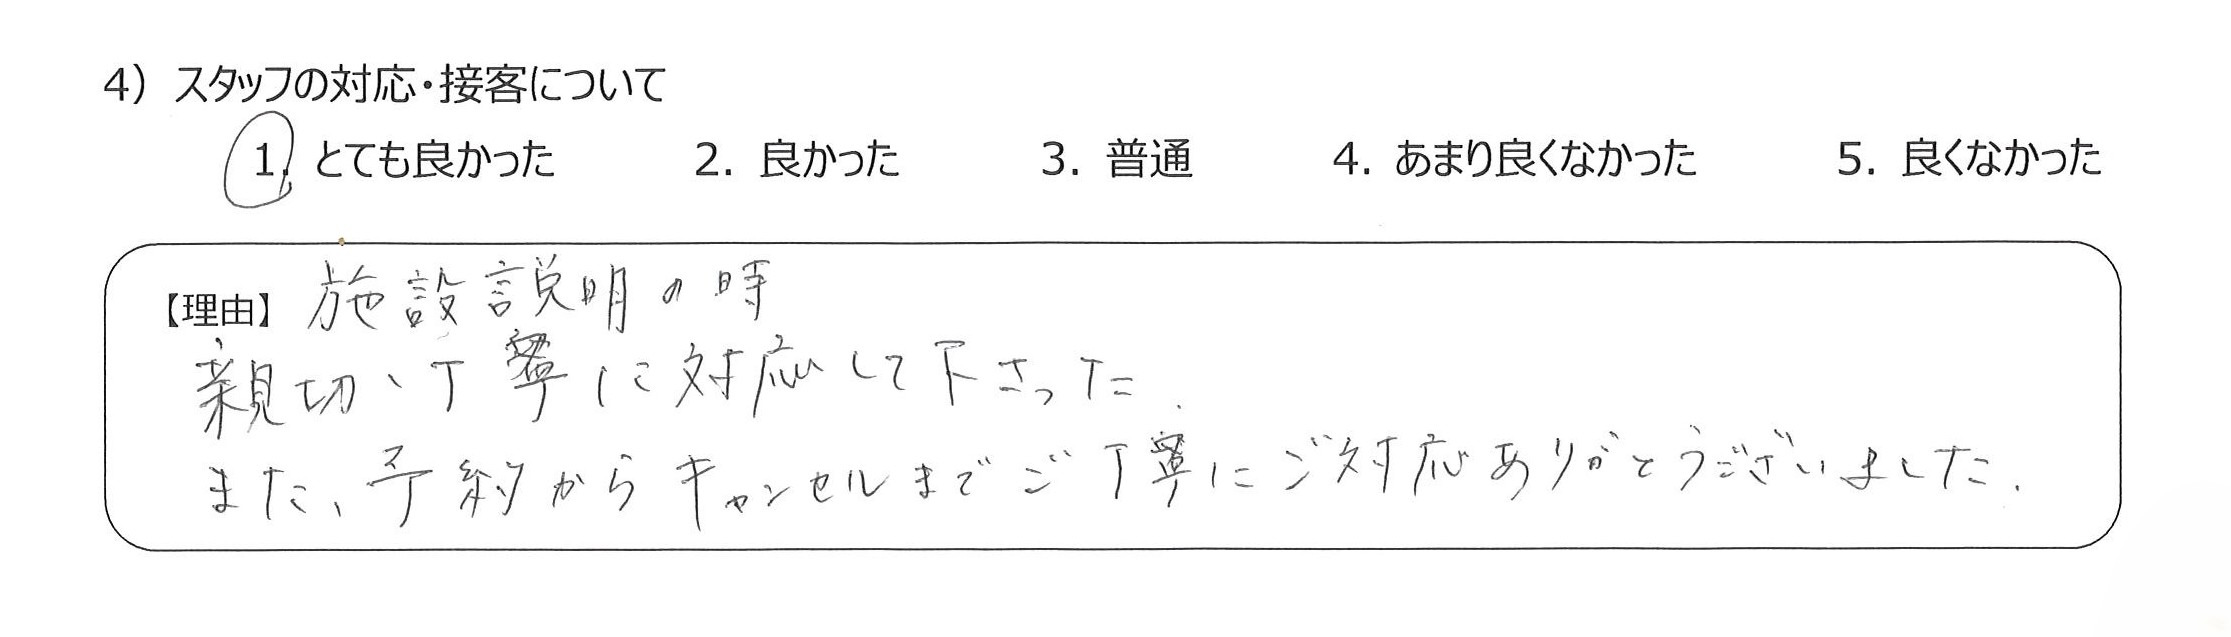 4）スタッフの対応・接客について
1. とても良かった 2. 良かった 3. 普通 4. あまり良くなかった 5. 良くなかった
【理由】施設説明の時
親切、丁寧に対応して下さった.
また、予約からキャンセルまでご丁寧にご対応ありがとうございました.